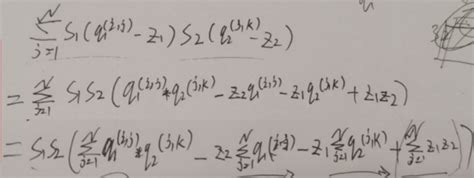 \sum_{j=1}^{N} S_1(q_1^{(i,j)} - z_1) S_2(q_2^{(j,k)} - z_2)
= \sum_{j=1}^{N} S_1 S_2 (q_1^{(i,j)} * q_2^{(j,k)} - z_2 q_1^{(i,j)} - z_1 q_2^{(j,k)} + z_1 z_2)
= S_1 S_2 (\sum_{j=1}^{N} q_1^{(i,j)} * q_2^{(j,k)} - z_2 \sum_{j=1}^{N} q_1^{(i,j)} - z_1 \sum_{j=1}^{N} q_2^{(j,k)} + \sum_{j=1}^{N} z_1 z_2)